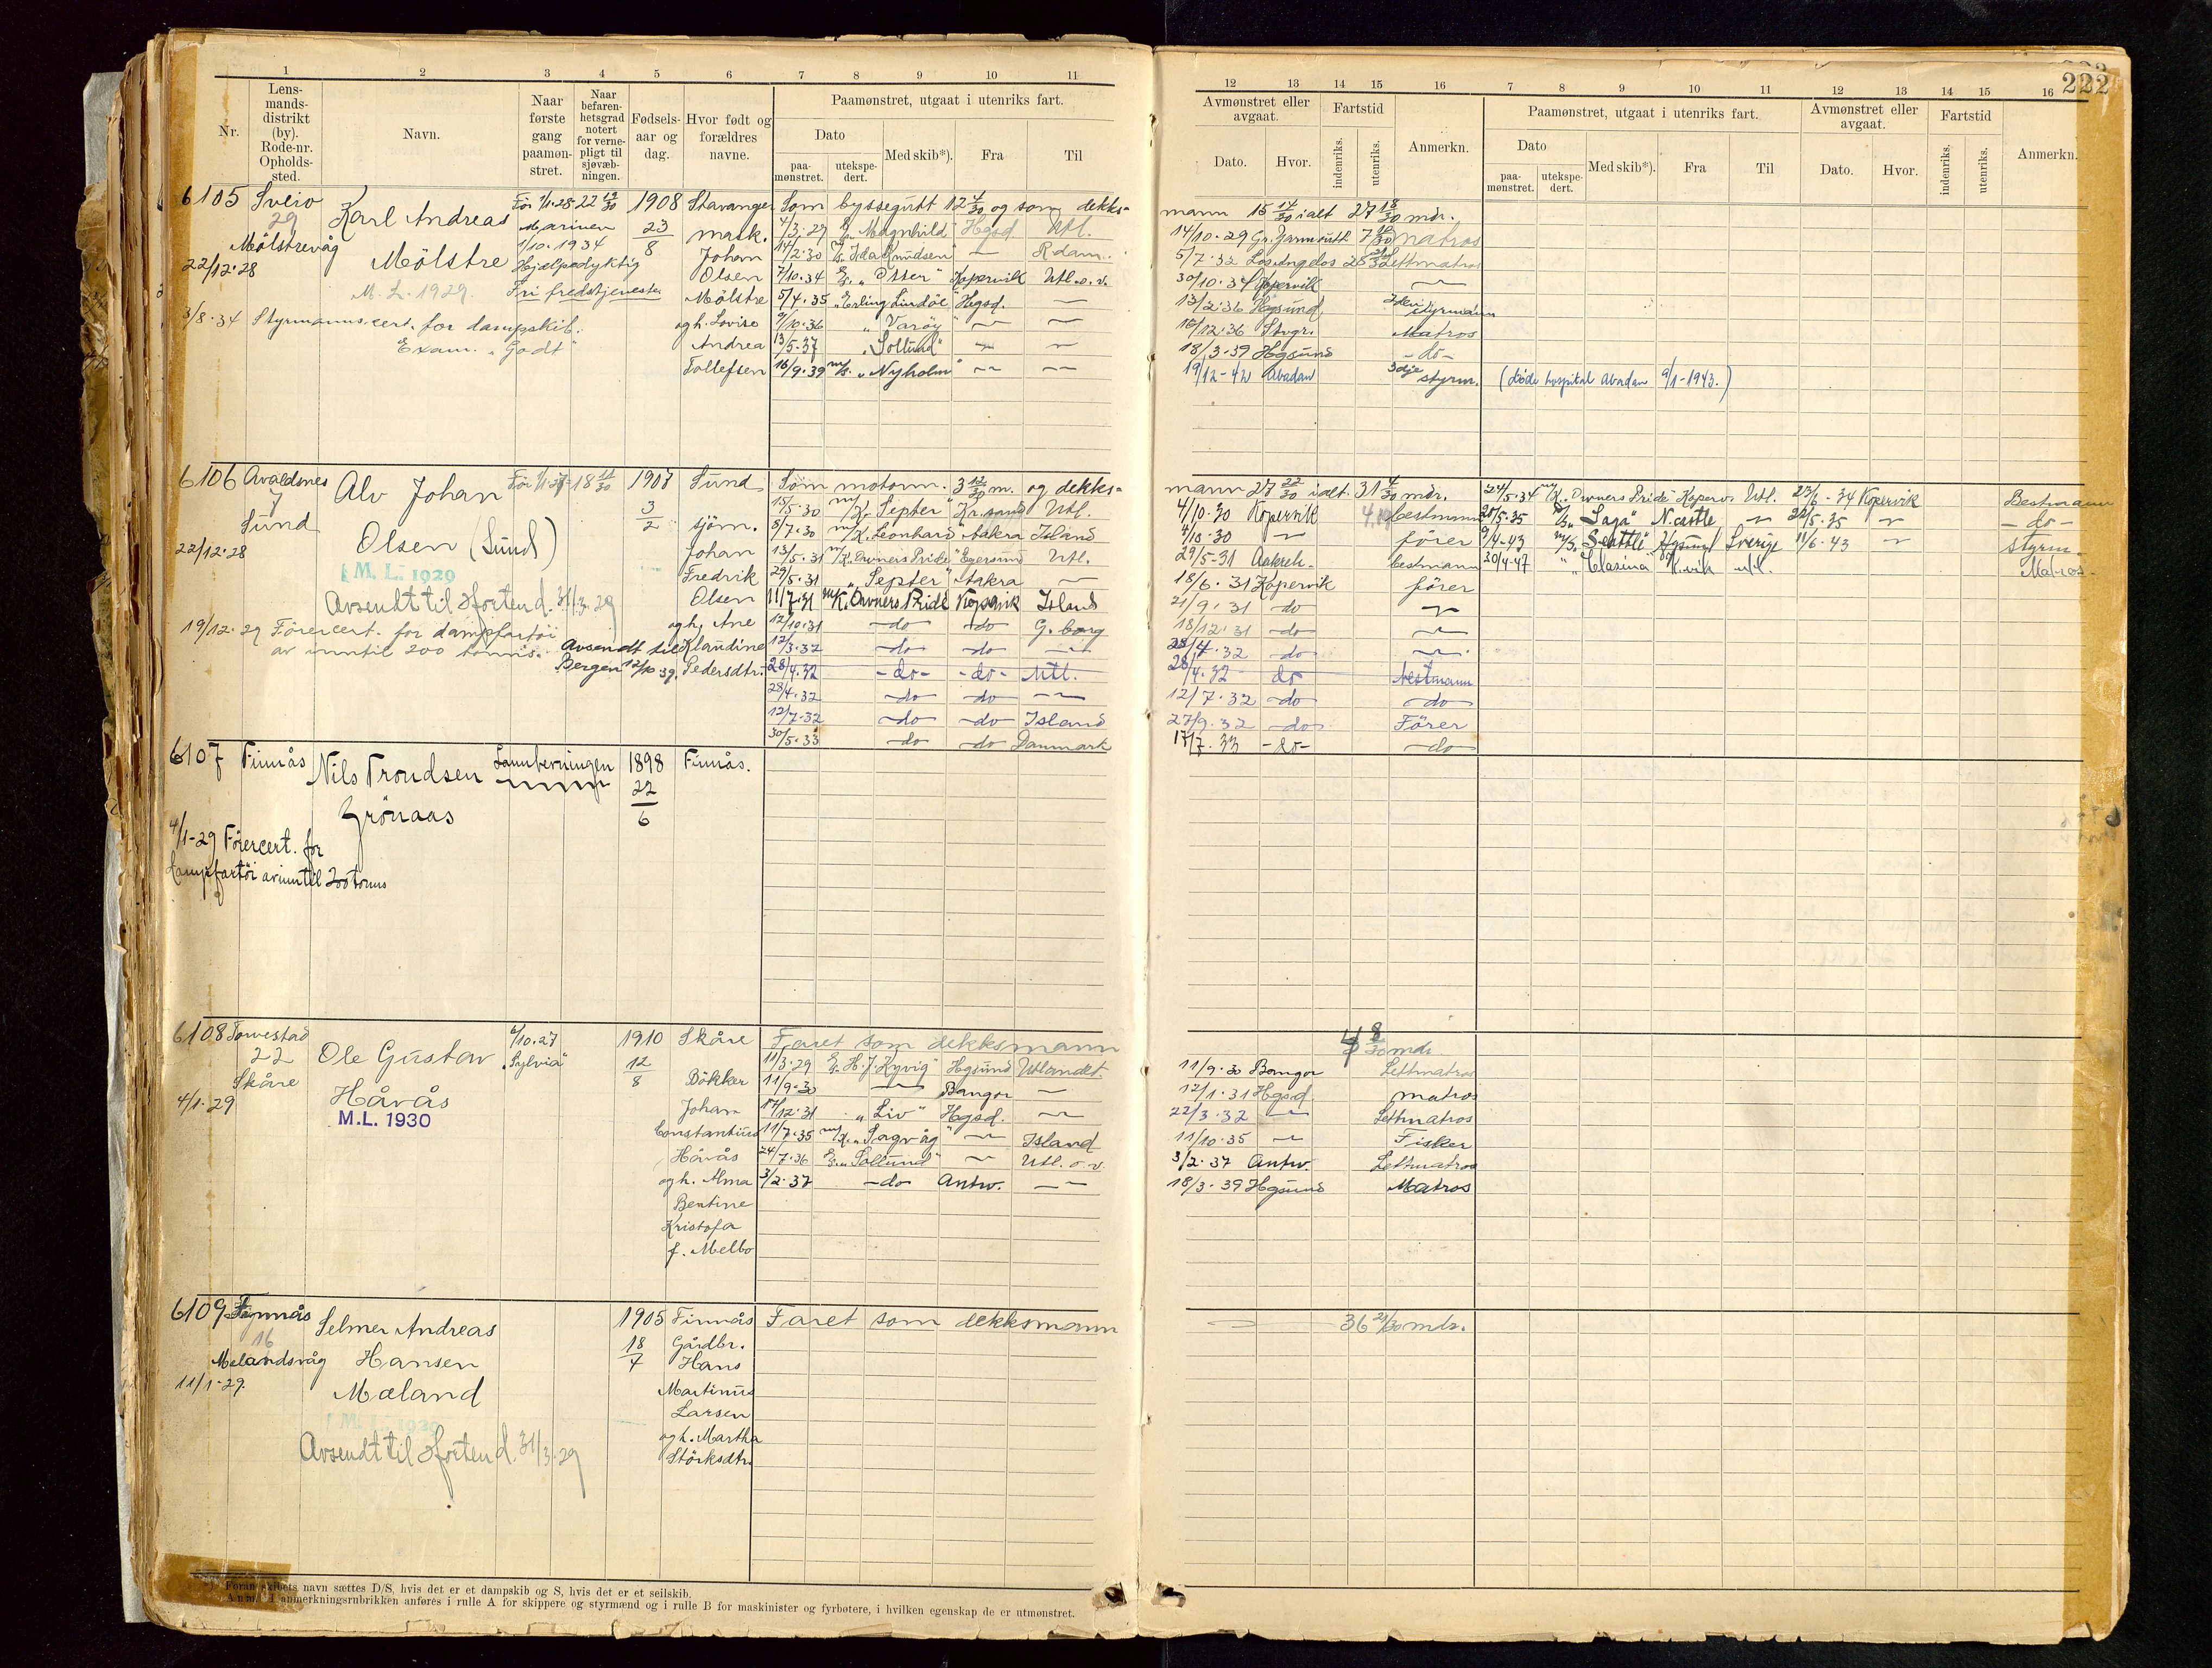 222
1 2 3 4 5 6 7 8 9 10 11
Nr.
Lens-
mands-
distrikt
(by).
Rode-nr.
Opholds-
sted.
Navn.
Naar
første
gang
paamøn-
stret.
Naar
befaren-
hetsgrad
notert
for verne-
pligt til
sjøvæb-
ningen.
Fødsels-
aar og
dag.
Hvor født og
forældres
navne.
Paamønstret, utgaat i utenriks fart.
Dato
paa-
mønstret.
utekspe-
dert.
Med skib*).
Fra
Til
12 13 14 15 16 7 8 9 10 11 12 13 14 15 16
Avmønstret eller
avgaat.
Dato. Hvor.
Fartstid
indenriks.
utenriks.
Anmerkn.
Paamønstret, utgaat i utenriks fart.
Dato
paa-
mønstret.
utekspe-
dert.
Med skib*).
Fra
Til
Avmønstret eller
avgaat.
Dato. Hvor.
Fartstid
indenriks.
utenriks.
Anmerkn.
6105 Sveio
29
Mölstrevåg
22/12.28
Karl Andreas
Mölstre
M. L. 1929.
3/8.34 Styrmannscert. for dampskib.
Exam. "Godt"
Før 1/1.28 22 19/30
Marinen
1/10.1934
Hjelpedyktig
Fri fredstjeneste
1908
23
8
Stavanger
mask.
Johan
Olsen
Mölstre
og h. Lovise
Andrea
Tollefsen
Som byssegutt 12 4/30 og som dekks-
mann 15 14/30 ialt 27 18/30 mdr.
4/3.29 "Magnhild" Hgsd Utl. 14/10.29 Gr. Yarmouth matros
14/2.30 "Ida Knudsen" — Rdam. 5/7.32 Los Angelos Lettmatros
7/10.34 "Otter" Kopervik Utl. o. v. 30/10.34 Kopervik —
5/4.35 "Erling Lindöe" Hgsd. — 13/2.36 Hgsund styrmann
9/10.36 "Varøy" — — 16/12.36 Stvgr. Matros
13/5.37 "Sollund" — — 18/3.39 Hgsund -do-
16/9.39 m/s. "Nyholm" — — 19/12-42 Abadan 3dje styrm. (Døde hospital Abadan 9/1-1943.)
6106 Avaldsnes
7
Sund
22/12.28
Alv Johan
Olsen (Sund)
M. L. 1929
Avsendt til Horten d. 31/3.29
19/12.29 Förercert. for dampfartöi
av inntil 200 tonns.
Avsendt til
Bergen 12/10 39.
18 11/30
1907
3
2
Sund
sjöm.
Johan
Fredrik
Olsen
og h. Ane
Klaudine
Pedersdtr.
Som motorm. 3 12/30 m. og dekks-
mann 27 22/30 ialt 31 4/30 mdr.
15/5.30 m/K. "Septer" Kr.sand Utl. 4/10.30 Kopervik bestmann
5/7.30 m/K. Leonhard Aakra Island 4/10.30 — förer
13/5.31 m/K. "Owners Pride" Egersund Utl. 29/5-31 Aakreh. bestmann
29/5.31 "Septer" Aakra — 18/6.31 Kopervik förer
11/7.31 m/K. Owners Pride Kopervik Island 21/9.31 -do- —
12/10.31 -do- -do- G.borg 18/12.31 -do- —
12/3.32 -do- -do- — 28/4.32 -do- —
28/4.32 -do- -do- Utl. 28/4.32 do bestmann
28/4.32 -do- -do- — 12/7.32 -do- -do-
12/7.32 -do- -do- Island 27/9.32 -do- Förer
30/5.33 -do- -do- Danmark 17/7.33 -do- -do-
24/5.34 m/K. Owners Pride Koperv. Utl. 23/6-34 Kopervik Bestmann
20/5.35 "Saga" N.castle — 22/5.35 — -do-
9/4-43 m/s. "Seattle" Hgsund Sverige 11/6-43 — styrm.
20/4-47 " "Clasina" K.vik utl. Matros.
6107 Finnås
Nils Trondsen
Grönaas
4/1-29 Förercert. for
dampfartöi av inntil 200 tonns
1898
22
6
Finnås.
6108 Torvestad
22
Skåre
4/1.29
Ole Gustav
Håvås
M.L. 1930
6/10.27
"Sylvia"
1910
12
8
Skåre
Bökker
Johan
Constantius
Håvås
og h. Alma
Bentine
Kristofa
f. Melbo
Faret som dekksmann 8/30 mdr.
11/3.29 "H. J. Kyvig" Hgsund Utlandet. 11/9.30 Bangor Lettmatros
11/9.30 — Bangor — 12/1.31 Hgsd. matros
17/12.31 "Liv" Hgsd. — 22/3.32 — Lettmatros
11/7.35 m/K. "Sagvåg" — Island 11/10.35 — Fisker
24/7.36 "Sollund" — Utl. o. v. 3/2.37 Antw. Lettmatros
3/2.37 -do- Antw. — 18/3.39 Hgsund Matros
6109 Finnås
16
Melandsvåg
11/1-29.
Selmer Andreas
Hansen
Mæland
M. L. 1929
Avsendt til Horten d. 31/3.29
1905
18
7
Finnås
Gårdbr.
Hans
Martinus
Larsen
og h. Martha
Störksdtr.
Faret som dekksmann — 36 21/30 mdr.
Foran skibets navn sættes D/S, hvis det er et dampskib og S, hvis det er et seilskib.
Anm. I anmerkningsrubrikken anføres i rulle A for skippere og styrmænd og i rulle B for maskinister og fyrbøtere, i hvilken egenskap de er utmønstret.